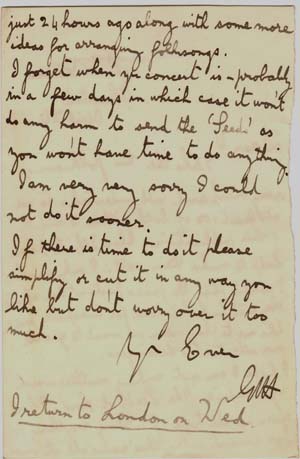 just 24 hours ago along with some more
ideas for arranging folksongs.
I forget when yr concert is – probably
in a few days in which case it won't
do any harm to send the 'Seeds' as
you won't have time to do anything.
I am very very sorry I could
not do it sooner.
If there is time to do it please
simplify or cut it in any way you
like but don't worry over it too
much.
Yr Ever
GvH
I return to London on Wed.